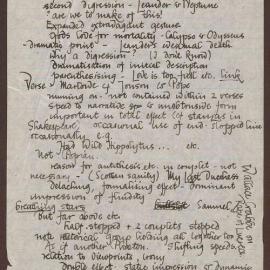 second digression - Leander & Neptune
are we to make of this?
Expanded extravagant gesture
Gods code for mortality - Calypso & Odysseus
- Dramatic point - Leander's eventual death
Why a digression? (I don't know)
dramatisation of initial description
parenthesising - Love is top, hell etc. link
Verse - Marlowe & Jonson & Pope
running on - not contained within 2 verses
speed to narrative form
important in total effect of stanzas in
Shakespeare, occasional use of end-stopped line
occasionally e.g.
Had wild Hippolytus ... etc
Not
reason for antithesis etc in couplet - not
necessary - (Scotian sanity) My last Duchess
detaching, formalising effect - dominant
impression of fluidity
breathing stars Samuel
but far above etc
half-stopped + 2 couplets stopped
note rhetorical group holding all together too
As if another Proteus. Shifting speeds,
relation to viewpoints, irony
double effect - static impression & dynamic